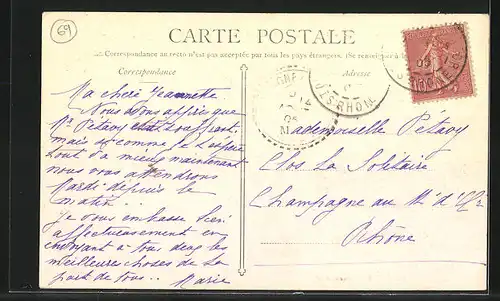 69
CARTE POSTALE
Correspondance au recto n'est pas acceptée par tous les pays étrangers. (Se renseigner à la
Correspondance
Adresse
Ma chère Jeannette
Nous avons appris que
Mr Pétavy était souffrant
mais comme j'espère
tout va mieux maintenant
nous vous attendrons
Mardi depuis le
matin.
Je vous embrasse bien
affectueusement en
envoyant à tous deux les
meilleures choses de la
part de tous. Marie
Mademoiselle Pétavy
Clos La Solitaire
Champagne au Mt d'Or
Rhône